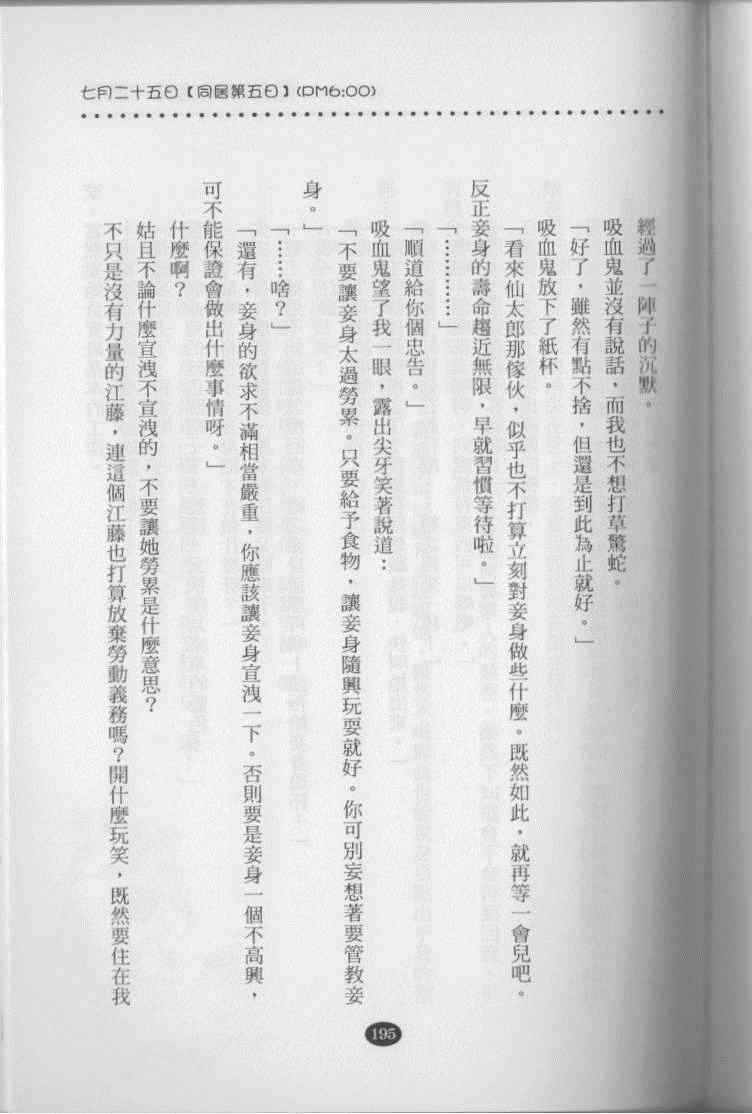 七月二十五日【同居第五日】(PM6:00)
經過了一陣子的沉默。
吸血鬼並沒有說話，而我也不想打草驚蛇。
「好了，雖然有點不捨，但還是到此為止就好。」
吸血鬼放下了紙杯。
「看來仙太郎那傢伙，似乎也不打算立刻對妾身做些什麼。既然如此，就再等一會兒吧。
反正妾身的壽命趨近無限，早就習慣等待啦。」
「…………」
「順道給你個忠告。」
吸血鬼望了我一眼，露出尖牙笑著說道：
「不要讓妾身太過勞累。只要給予食物，讓妾身隨興玩耍就好。你可別妄想著要管教妾
身。」
「……啥？」
「還有，妾身的欲求不滿相當嚴重，你應該讓妾身宣洩一下。否則要是妾身一個不高興，
可不能保證會做出什麼事情呀。」
什麼啊？
姑且不論什麼宣洩不宣洩的，不要讓她勞累是什麼意思？
不只是沒有力量的江藤，連這個江藤也打算放棄勞動義務嗎？開什麼玩笑，既然要住在我
195